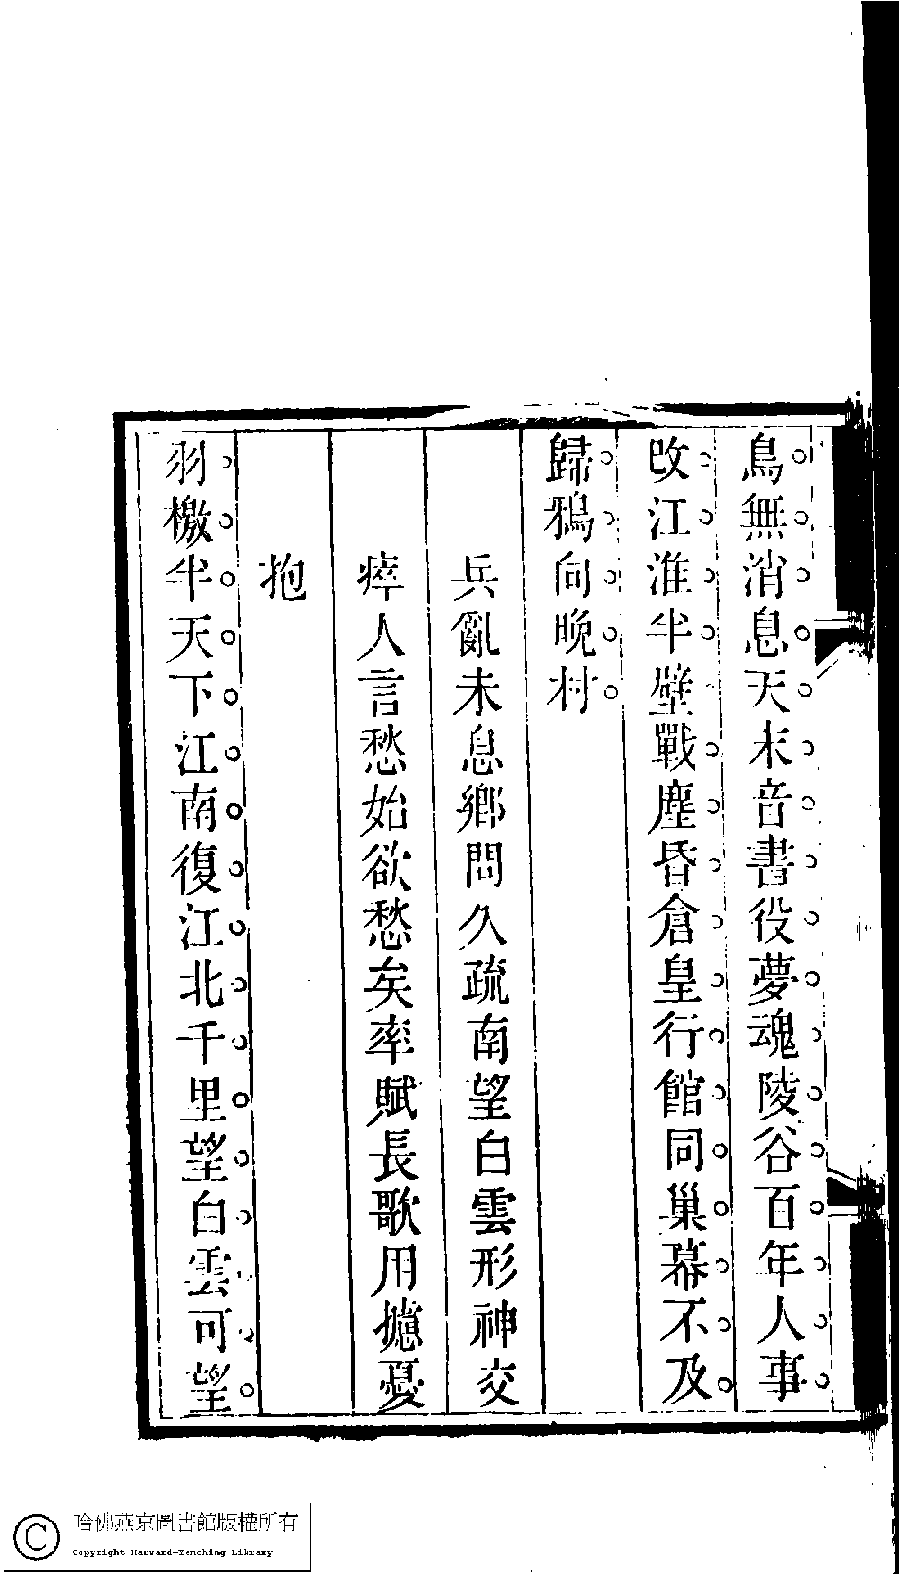 鳥無消息天末音書役夢魂陵谷百年人事
改江淮半壁戰塵昏倉皇行館同巢幕不及
歸鴉向晚村
兵亂未息鄉問久疏南望白雲形神交
瘁人言愁始欲愁矣率賦長歌用攄憂
抱
羽檄半天下江南復江北千里望白雲雲可望
哈佛燕京圖書館版權所有
Copyright Harvard-Yenching Library